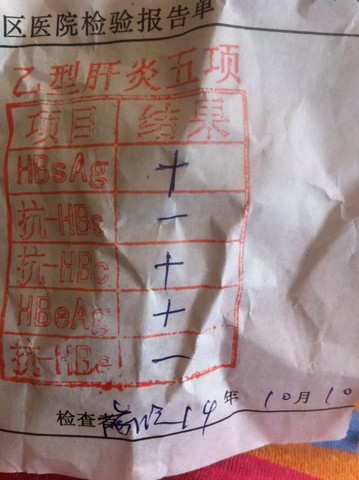 区医院检验报告单
乙型肝炎五项
项目 结果
HBsAg +
抗-HBs −
抗-HBc +
HBeAg +
抗-HBe −
14年10月10
检查者